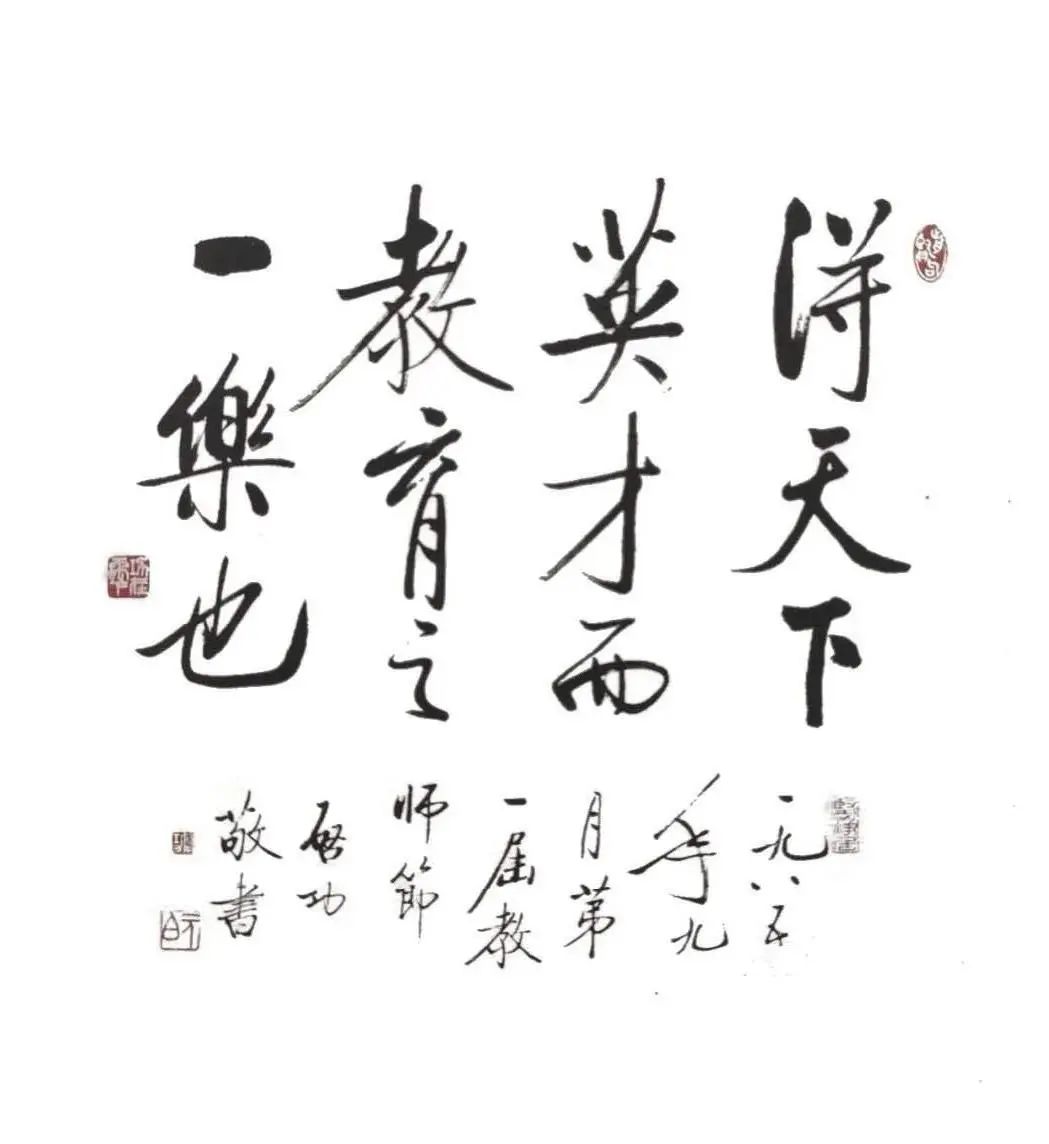 得天下
英才而
教育之
一樂也
一九八五
年九
月第
一届教
师節
啓功
敬書